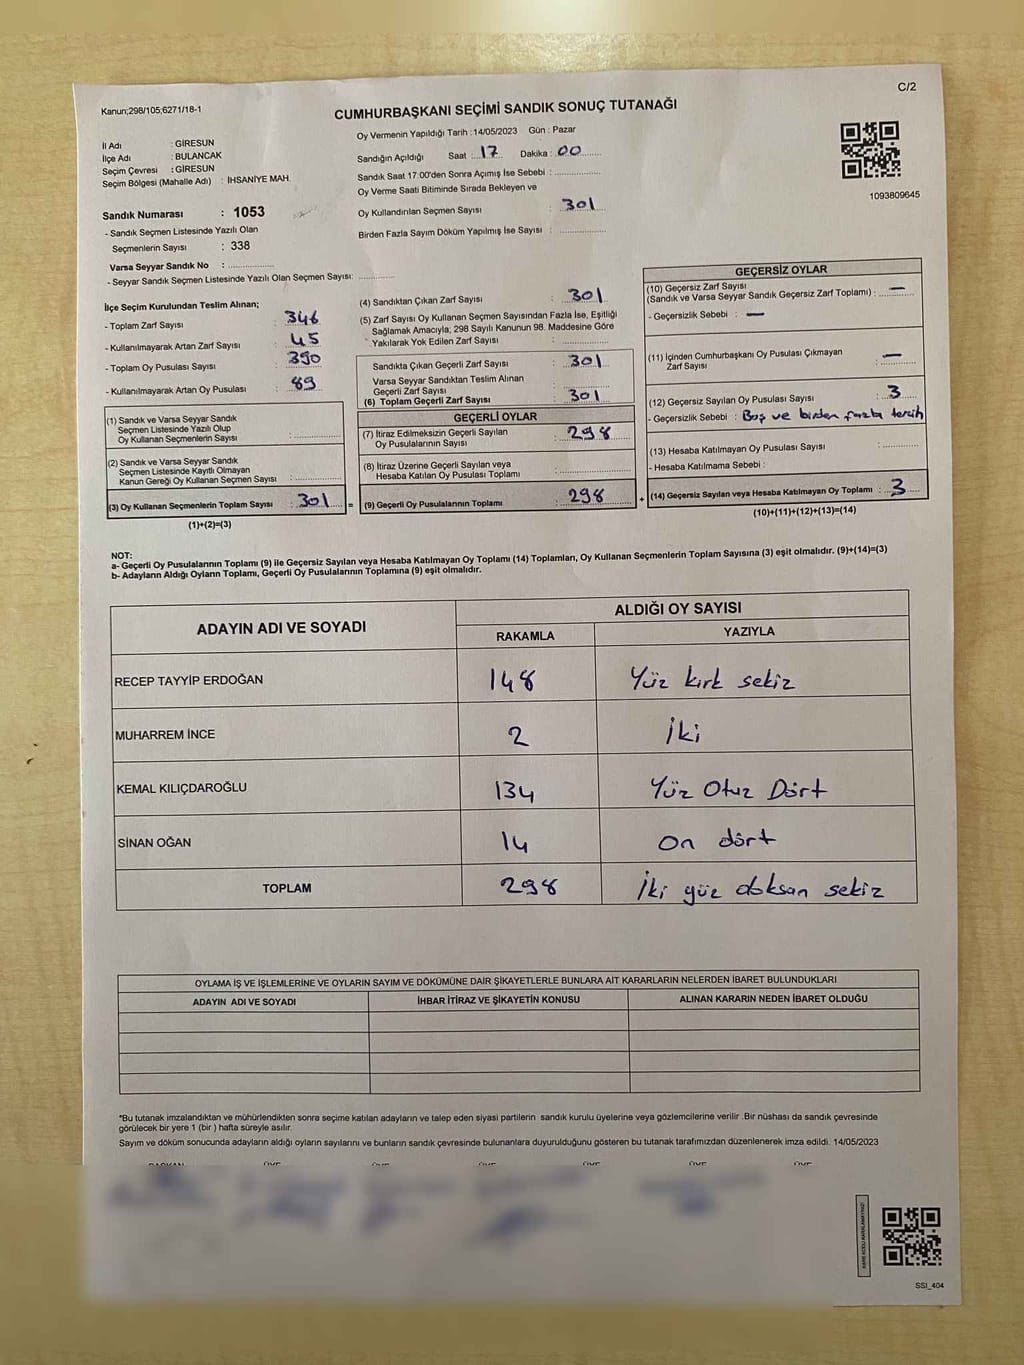 C/2
Kanun;298/105;6271/18-1
CUMHURBAŞKANI SEÇİMİ SANDIK SONUÇ TUTANAĞI
İl Adı : GİRESUN
İlçe Adı : BULANCAK
Seçim Çevresi : GİRESUN
Seçim Bölgesi (Mahalle Adı) : İHSANİYE MAH.
Sandık Numarası : 1053
- Sandık Seçmen Listesinde Yazılı Olan
Seçmenlerin Sayısı : 338
Varsa Seyyar Sandık No :
- Seyyar Sandık Seçmen Listesinde Yazılı Olan Seçmen Sayısı:
Oy Vermenin Yapıldığı Tarih : 14/05/2023 Gün : Pazar
Sandığın Açıldığı Saat : 17 Dakika : 00
Sandık Saat 17:00'den Sonra Açımış İse Sebebi :
Oy Verme Saati Bitiminde Sırada Bekleyen ve
Oy Kullandırılan Seçmen Sayısı : 301
Birden Fazla Sayım Döküm Yapılmış İse Sayısı :
1093809645
İlçe Seçim Kurulundan Teslim Alınan;
- Toplam Zarf Sayısı : 346
- Kullanılmayarak Artan Zarf Sayısı : 45
- Toplam Oy Pusulası Sayısı : 390
- Kullanılmayarak Artan Oy Pusulası : 89
(1) Sandık ve Varsa Seyyar Sandık
Seçmen Listesinde Yazılı Olup
Oy Kullanan Seçmenlerin Sayısı :
(2) Sandık ve Varsa Seyyar Sandık
Seçmen Listesinde Kayıtlı Olmayan
Kanun Gereği Oy Kullanan Seçmen Sayısı :
(3) Oy Kullanan Seçmenlerin Toplam Sayısı : 301 =
(1)+(2)=(3)
(4) Sandıktan Çıkan Zarf Sayısı : 301
(5) Zarf Sayısı Oy Kullanan Seçmen Sayısından Fazla İse, Eşitliği
Sağlamak Amacıyla; 298 Sayılı Kanunun 98. Maddesine Göre
Yakılarak Yok Edilen Zarf Sayısı :
Sandıkta Çıkan Geçerli Zarf Sayısı : 301
Varsa Seyyar Sandıktan Teslim Alınan
Geçerli Zarf Sayısı :
(6) Toplam Geçerli Zarf Sayısı : 301
GEÇERLİ OYLAR
(7) İtiraz Edilmeksizin Geçerli Sayılan
Oy Pusulalarının Sayısı : 298
(8) İtiraz Üzerine Geçerli Sayılan veya
Hesaba Katılan Oy Pusulası Toplamı :
(9) Geçerli Oy Pusulalarının Toplamı : 298 +
GEÇERSİZ OYLAR
(10) Geçersiz Zarf Sayısı
(Sandık ve Varsa Seyyar Sandık Geçersiz Zarf Toplamı) : —
- Geçersizlik Sebebi : —
(11) İçinden Cumhurbaşkanı Oy Pusulası Çıkmayan
Zarf Sayısı : —
(12) Geçersiz Sayılan Oy Pusulası Sayısı : 3
- Geçersizlik Sebebi : Boş ve birden fazla tercih
(13) Hesaba Katılmayan Oy Pusulası Sayısı :
- Hesaba Katılmama Sebebi :
(14) Geçersiz Sayılan veya Hesaba Katılmayan Oy Toplamı : 3
(10)+(11)+(12)+(13)=(14)
NOT:
a- Geçerli Oy Pusulalarının Toplamı (9) ile Geçersiz Sayılan veya Hesaba Katılmayan Oy Toplamı (14) Toplamları, Oy Kullanan Seçmenlerin Toplam Sayısına (3) eşit olmalıdır. (9)+(14)=(3)
b- Adayların Aldığı Oyların Toplamı, Geçerli Oy Pusulalarının Toplamına (9) eşit olmalıdır.
ADAYIN ADI VE SOYADI ALDIĞI OY SAYISI
RAKAMLA YAZIYLA
RECEP TAYYİP ERDOĞAN 148 Yüz kırk sekiz
MUHARREM İNCE 2 İki
KEMAL KILIÇDAROĞLU 134 Yüz Otuz Dört
SİNAN OĞAN 14 On dört
TOPLAM 298 İki yüz doksan sekiz
OYLAMA İŞ VE İŞLEMLERİNE VE OYLARIN SAYIM VE DÖKÜMÜNE DAİR ŞİKAYETLERLE BUNLARA AİT KARARLARIN NELERDEN İBARET BULUNDUKLARI
ADAYIN ADI VE SOYADI İHBAR İTİRAZ VE ŞİKAYETİN KONUSU ALINAN KARARIN NEDEN İBARET OLDUĞU
*Bu tutanak imzalandıktan ve mühürlendikten sonra seçime katılan adayların ve talep eden siyasi partilerin sandık kurulu üyelerine veya gözlemcilerine verilir .Bir nüshası da sandık çevresinde
görülecek bir yere 1 (bir ) hafta süreyle asılır.
Sayım ve döküm sonucunda adayların aldığı oyların sayılarını ve bunların sandık çevresinde bulunanlara duyurulduğunu gösteren bu tutanak tarafımızdan düzenlenerek imza edildi. 14/05/2023
SSI_404